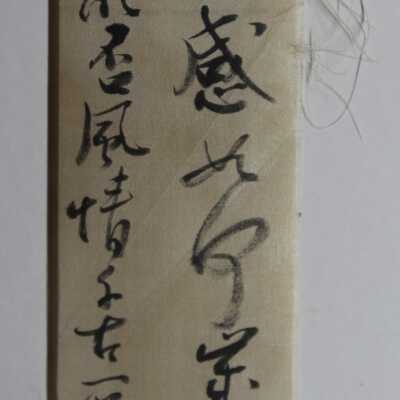 感如何
否風情千古一